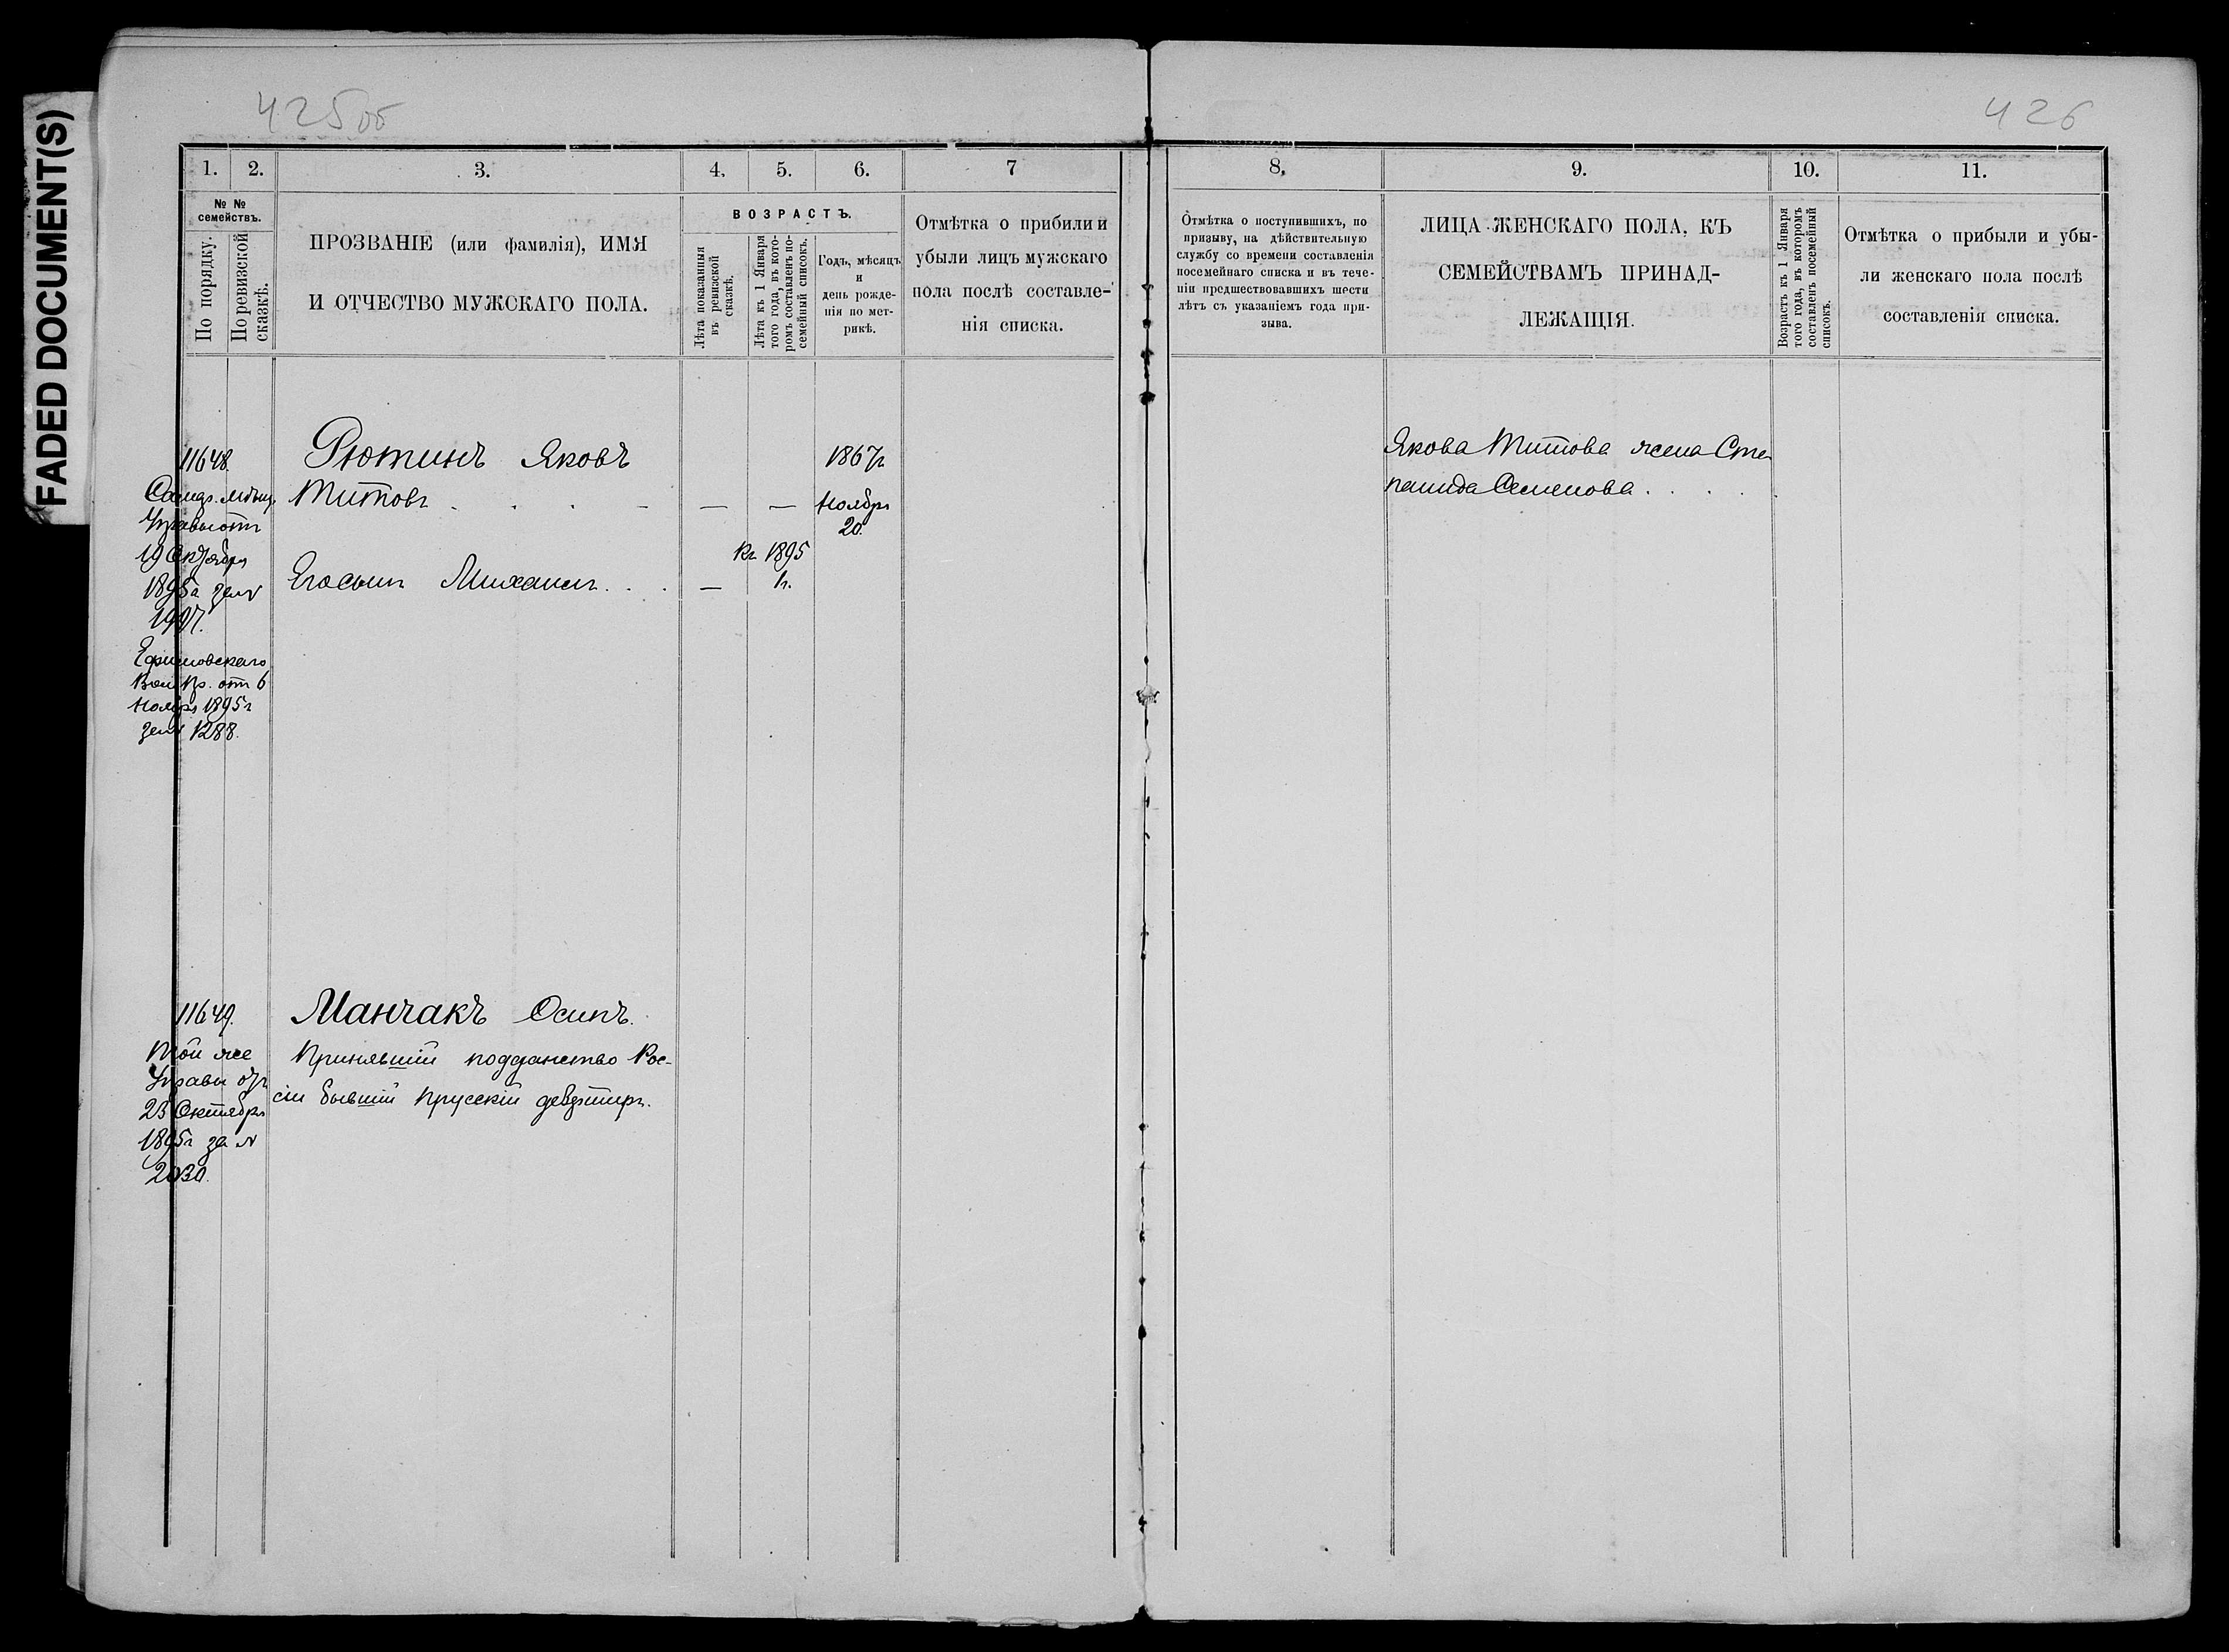 FADED DOCUMENT(S)
425об
426
1.
2.
3.
4.
5.
6.
7
№ №
семействъ.
По порядку.
По ревизской
сказкѣ.
ПРОЗВАНІЕ (или фамилія), ИМЯ
И ОТЧЕСТВО МУЖСКАГО ПОЛА.
ВОЗРАСТЪ.
Лѣта показанныя
въ ревизской
сказкѣ.
Лѣта къ 1 Января
того года, въ кото-
ромъ составленъ по-
семейный списокъ.
Годъ, мѣсяцъ
и
день рожде-
нія по мет-
рикѣ.
Отмѣтка о прибыли и
убыли лицъ мужскаго
пола послѣ составле-
нія списка.
11648.
Самар. мѣщ.
Управы отъ
19 Октября
1895 за №
1997.
Ефимовскаго
Вол. Пр. отъ 6
Ноября 1895 г
за № 1288.
Рютинъ Яковъ
Титовъ . . . —
— —
1867 г
Ноября
20.
Къ 1895
Его сынъ Михаилъ . . .
—
1 г.
11649.
Той же
Управы отъ
23 Октября
1895 г за №
2030.
Манчакъ Осипъ.
Принявшій подданство Рос-
сіи бывшій Прусскій дезертиръ.
8.
9.
10.
11.
Отмѣтка о поступившихъ, по
призыву, на дѣйствительную
службу со времени составленія
посемейнаго списка и въ тече-
ніи предшествовавшихъ шести
лѣтъ съ указаніемъ года при-
зыва.
ЛИЦА ЖЕНСКАГО ПОЛА, КЪ
СЕМЕЙСТВАМЪ ПРИНАД-
ЛЕЖАЩІЯ.
Возрастъ къ 1 Января
того года, въ которомъ
составленъ посемейный
списокъ.
Отмѣтка о прибыли и убы-
ли женскаго пола послѣ
составленія списка.
Якова Титова жена Сте-
панида Семенова . . .